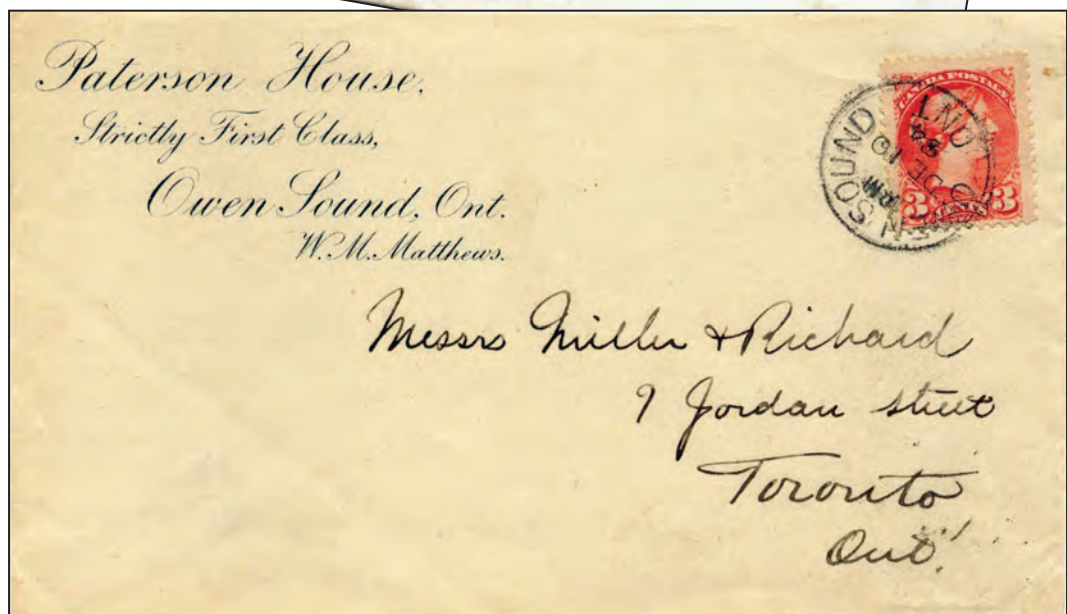 Paterson House,
Strictly First Class,
Owen Sound, Ont.
W. M. Matthews.
CANADA POSTAGE
3 CENTS 3
OWEN SOUND ONT
PM
DE 10
94
Messrs Miller & Richard
9 Jordan Street
Toronto
Ont.